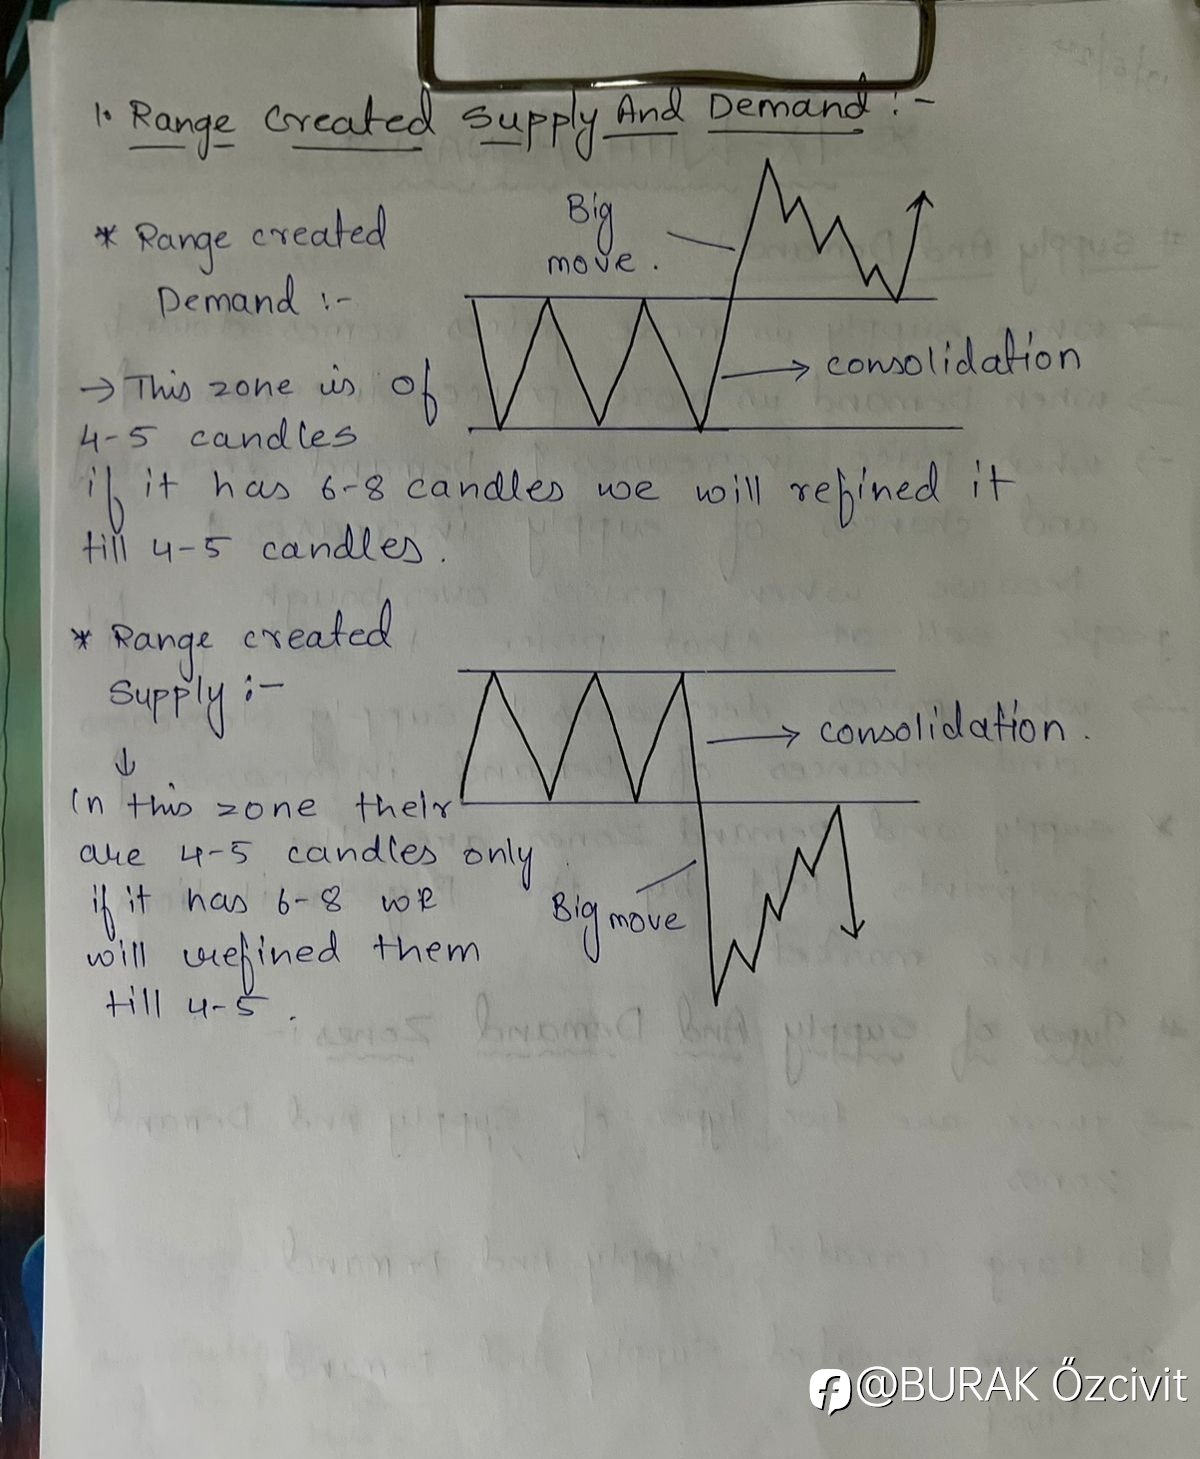 1. Range Created Supply And Demand :-
* Range created
Demand :-
Big
move.
→ consolidation
→ This zone is of
4-5 candles
if it has 6-8 candles we will refined it
till 4-5 candles.
* Range created
Supply :-
↓
→ consolidation.
In this zone their
are 4-5 candles only
if it has 6-8 we
will refined them
till 4-5.
Big move
@BURAK Őzcivit